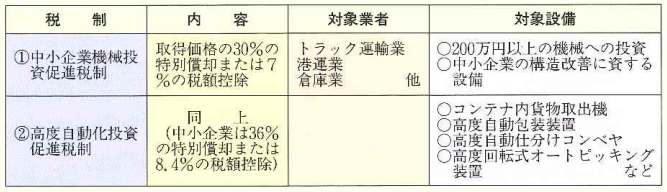 税制
内容
対象業者
対象設備
①中小企業機械投
資促進税制
取得価格の30%の
特別償却または7
%の税額控除
トラック運輸業
港運業
倉庫業 他
○200万円以上の機械への投資
○中小企業の構造改善に資する
設備
②高度自動化投資
促進税制
同上
(中小企業は36%
の特別償却または
8.4%の税額控除)
○コンテナ内貨物取出機
○高度自動包装装置
○高度自動仕分けコンベヤ
○高度回転式オートピッキング
装置 など